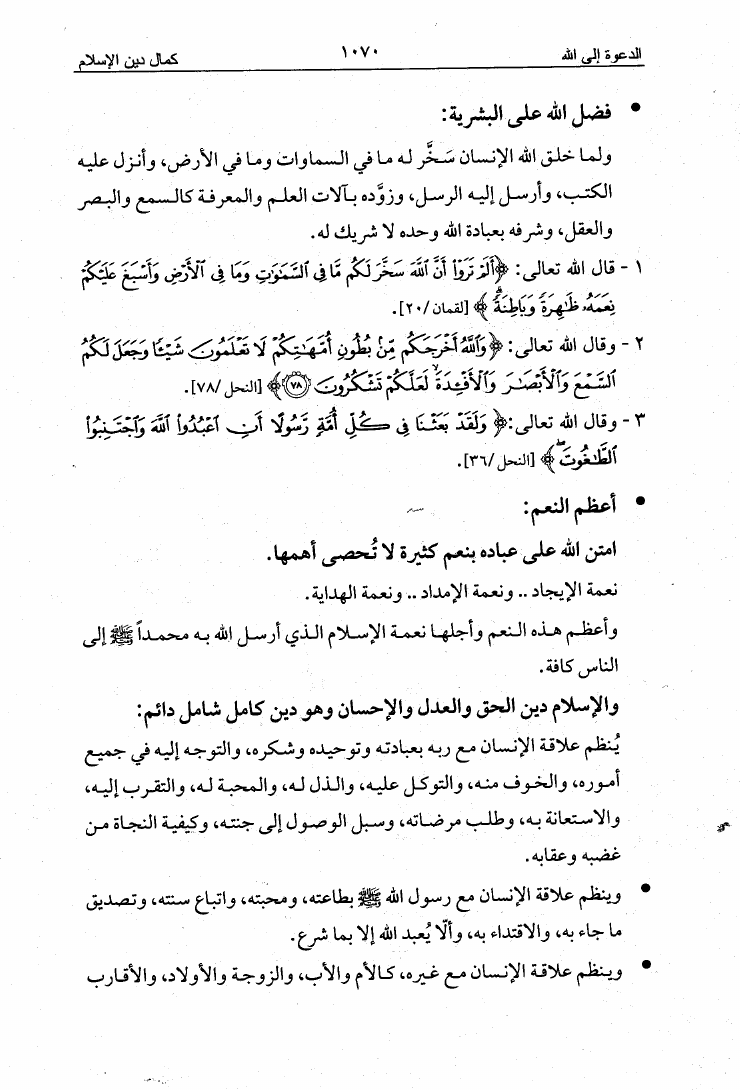 الدعوة إلى الله ١٠٧٠ كمال دين الإسلام
• فضل الله على البشرية:
ولما خلق الله الإنسان سَخَّر له ما في السماوات وما في الأرض، وأنزل عليه
الكتب، وأرسل إليه الرسل، وزوَّده بآلات العلم والمعرفة كالسمع والبصر
والعقل، وشرفه بعبادة الله وحده لا شريك له.
١ - قال الله تعالى: ﴿أَلَمْ تَرَوْا۟ أَنَّ ٱللَّهَ سَخَّرَ لَكُم مَّا فِى ٱلسَّمَٰوَٰتِ وَمَا فِى ٱلْأَرْضِ وَأَسْبَغَ عَلَيْكُمْ
نِعَمَهُۥ ظَٰهِرَةً وَبَاطِنَةً ۗ﴾ [لقمان/٢٠].
٢ - وقال الله تعالى: ﴿وَٱللَّهُ أَخْرَجَكُم مِّنۢ بُطُونِ أُمَّهَٰتِكُمْ لَا تَعْلَمُونَ شَيْـًٔا وَجَعَلَ لَكُمُ
ٱلسَّمْعَ وَٱلْأَبْصَٰرَ وَٱلْأَفْـِٔدَةَ ۙ لَعَلَّكُمْ تَشْكُرُونَ ٧٨﴾ [النحل/٧٨].
٣ - وقال الله تعالى: ﴿وَلَقَدْ بَعَثْنَا فِى كُلِّ أُمَّةٍ رَّسُولًا أَنِ ٱعْبُدُوا۟ ٱللَّهَ وَٱجْتَنِبُوا۟
ٱلطَّٰغُوتَ ۖ﴾ [النحل/٣٦].
• أعظم النعم:
امتن الله على عباده بنعم كثيرة لا تُحصى أهمها.
نعمة الإيجاد .. ونعمة الإمداد .. ونعمة الهداية.
وأعظم هذه النعم وأجلها نعمة الإسلام الذي أرسل الله به محمداً ﷺ إلى
الناس كافة.
والإسلام دين الحق والعدل والإحسان وهو دين كامل شامل دائم:
يُنظم علاقة الإنسان مع ربه بعبادته وتوحيده وشكره، والتوجه إليه في جميع
أموره، والخوف منه، والتوكل عليه، والذل له، والمحبة له، والتقرب إليه،
والاستعانة به، وطلب مرضاته، وسبل الوصول إلى جنته، وكيفية النجاة من
غضبه وعقابه.
• وينظم علاقة الإنسان مع رسول الله ﷺ بطاعته، ومحبته، واتباع سنته، وتصديق
ما جاء به، والاقتداء به، وألّا يُعبد الله إلا بما شرع.
• وينظم علاقة الإنسان مع غيره، كالأم والأب، والزوجة والأولاد، والأقارب